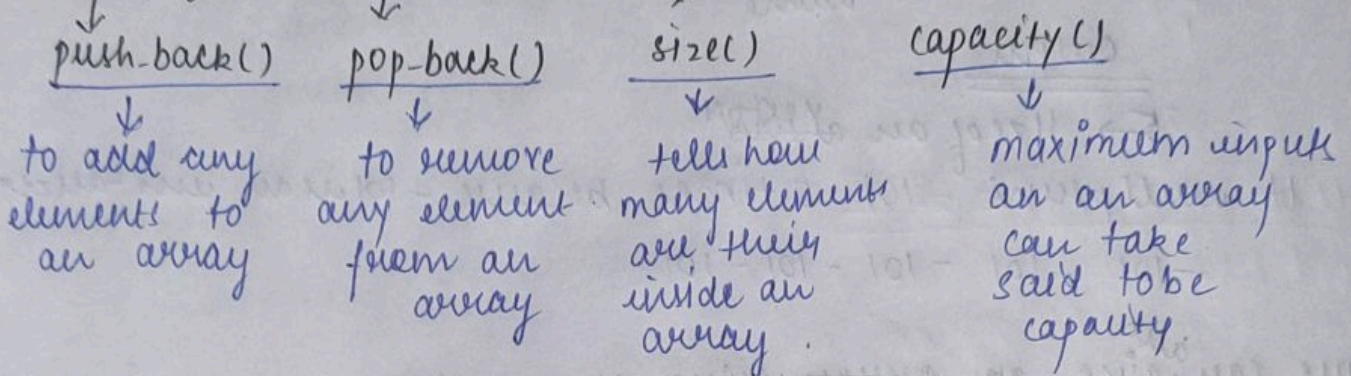 push-back()
to add any
elements to
an array
pop-back()
to remove
any element
from an
array
size()
tells how
many elements
are their
inside an
array.
capacity()
maximum inputs
an an array
can take
said tobe
capacity.